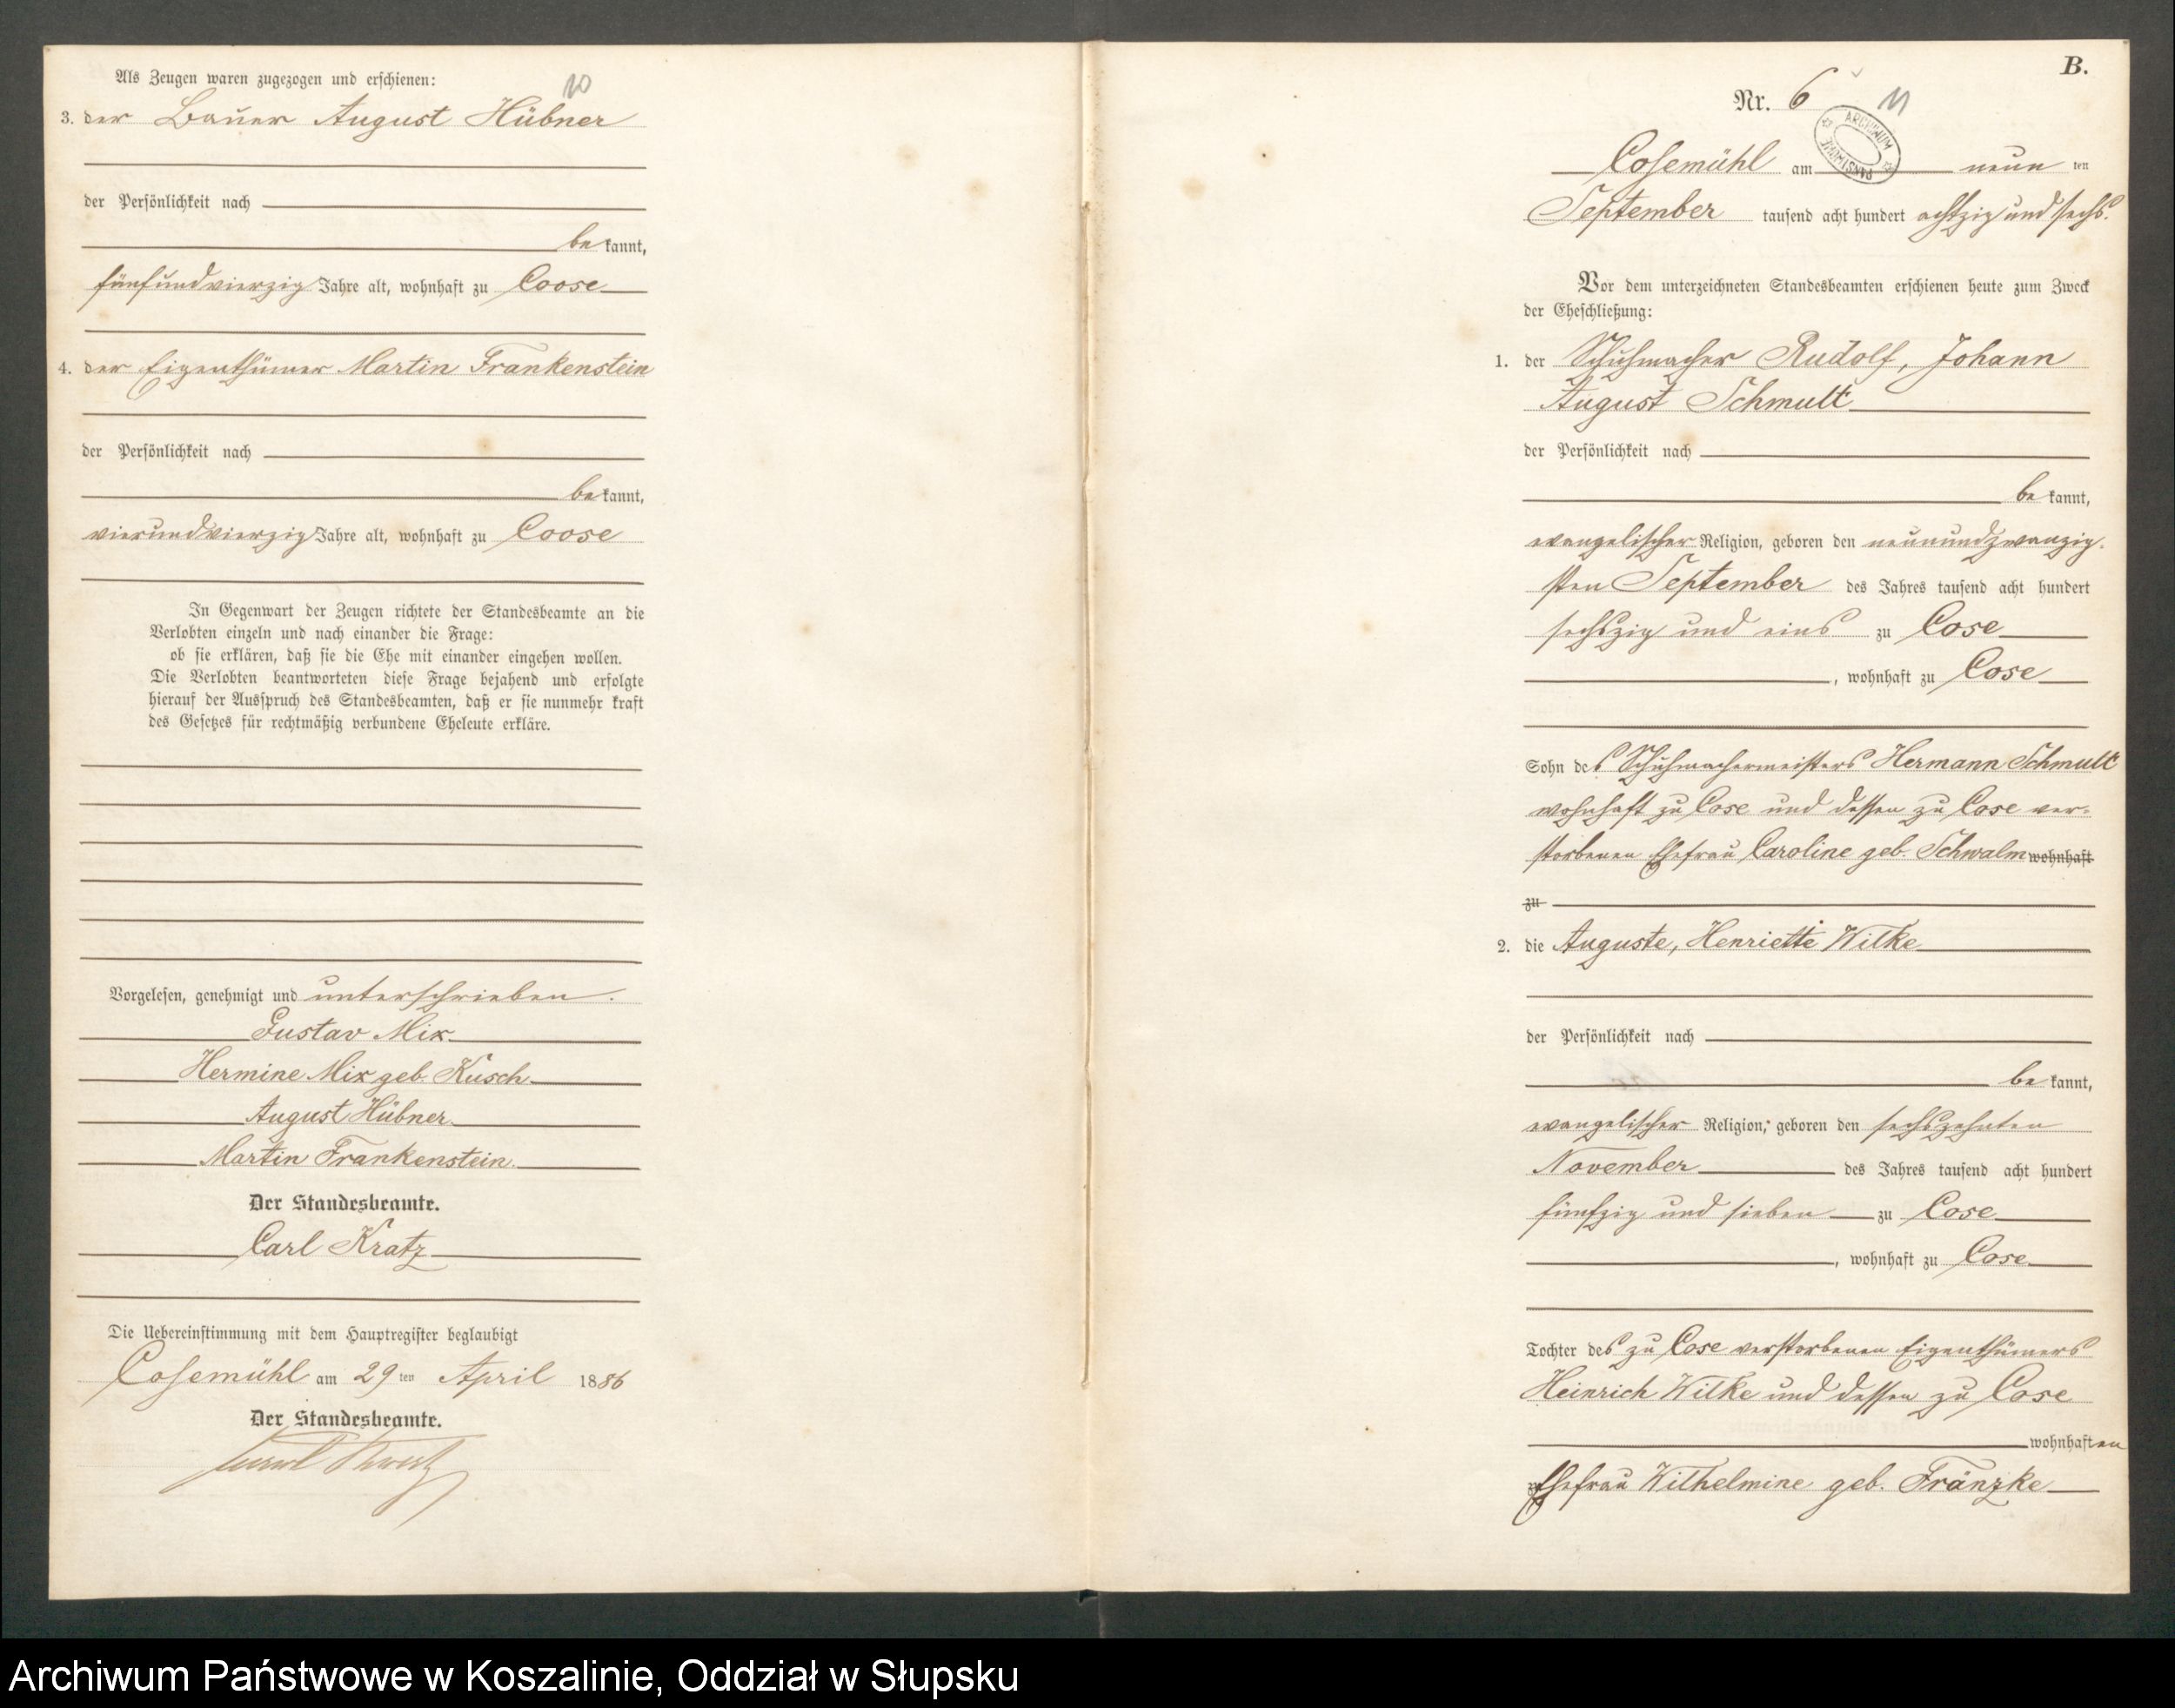 Als Zeugen waren zugezogen und erschienen:
10
3. der Bauer August Hübner
der Persönlichkeit nach
be kannt,
fünfundvierzig Jahre alt, wohnhaft zu Coose
4. der Eigenthümer Martin Frankenstein
der Persönlichkeit nach
be kannt,
vierundvierzig Jahre alt, wohnhaft zu Coose
In Gegenwart der Zeugen richtete der Standesbeamte an die
Verlobten einzeln und nach einander die Frage:
ob sie erklären, daß sie die Ehe mit einander eingehen wollen.
Die Verlobten beantworteten diese Frage bejahend und erfolgte
hierauf der Ausspruch des Standesbeamten, daß er sie nunmehr kraft
des Gesetzes für rechtmäßig verbundene Eheleute erkläre.
Vorgelesen, genehmigt und unterschrieben.
Gustav Mix
Hermine Mix geb. Kusch
August Hübner
Martin Frankenstein.
Der Standesbeamte.
Carl Kratz
Die Uebereinstimmung mit dem Hauptregister beglaubigt
Cosemühl am 29 ten April 1886
Der Standesbeamte.
B.
Nr. 6
11
ARCHIWUM PAŃSTWOWE
Cosemühl am neun ten
September tausend acht hundert achtzig und sechs.
Vor dem unterzeichneten Standesbeamten erschienen heute zum Zweck
der Eheschließung:
1. der Schuhmacher Rudolf, Johann
August Schmult
der Persönlichkeit nach
be kannt,
evangelischer Religion, geboren den neunundzwanzig-
sten September des Jahres tausend acht hundert
sechszig und eins zu Cose
, wohnhaft zu Cose
Sohn des Schuhmachermeisters Hermann Schmult
wohnhaft zu Cose und dessen zu Cose ver-
storbenen Ehefrau Caroline geb. Schwalm wohnhaft
zu
2. die Auguste, Henriette Wilke
der Persönlichkeit nach
be kannt,
evangelischer Religion, geboren den sechszehnten
November des Jahres tausend acht hundert
fünfzig und sieben zu Cose
, wohnhaft zu Cose
Tochter des zu Cose verstorbenen Eigenthümers
Heinrich Wilke und dessen zu Cose
wohnhaften
Ehefrau Wilhelmine geb. Fränzke
Archiwum Państwowe w Koszalinie, Oddział w Słupsku